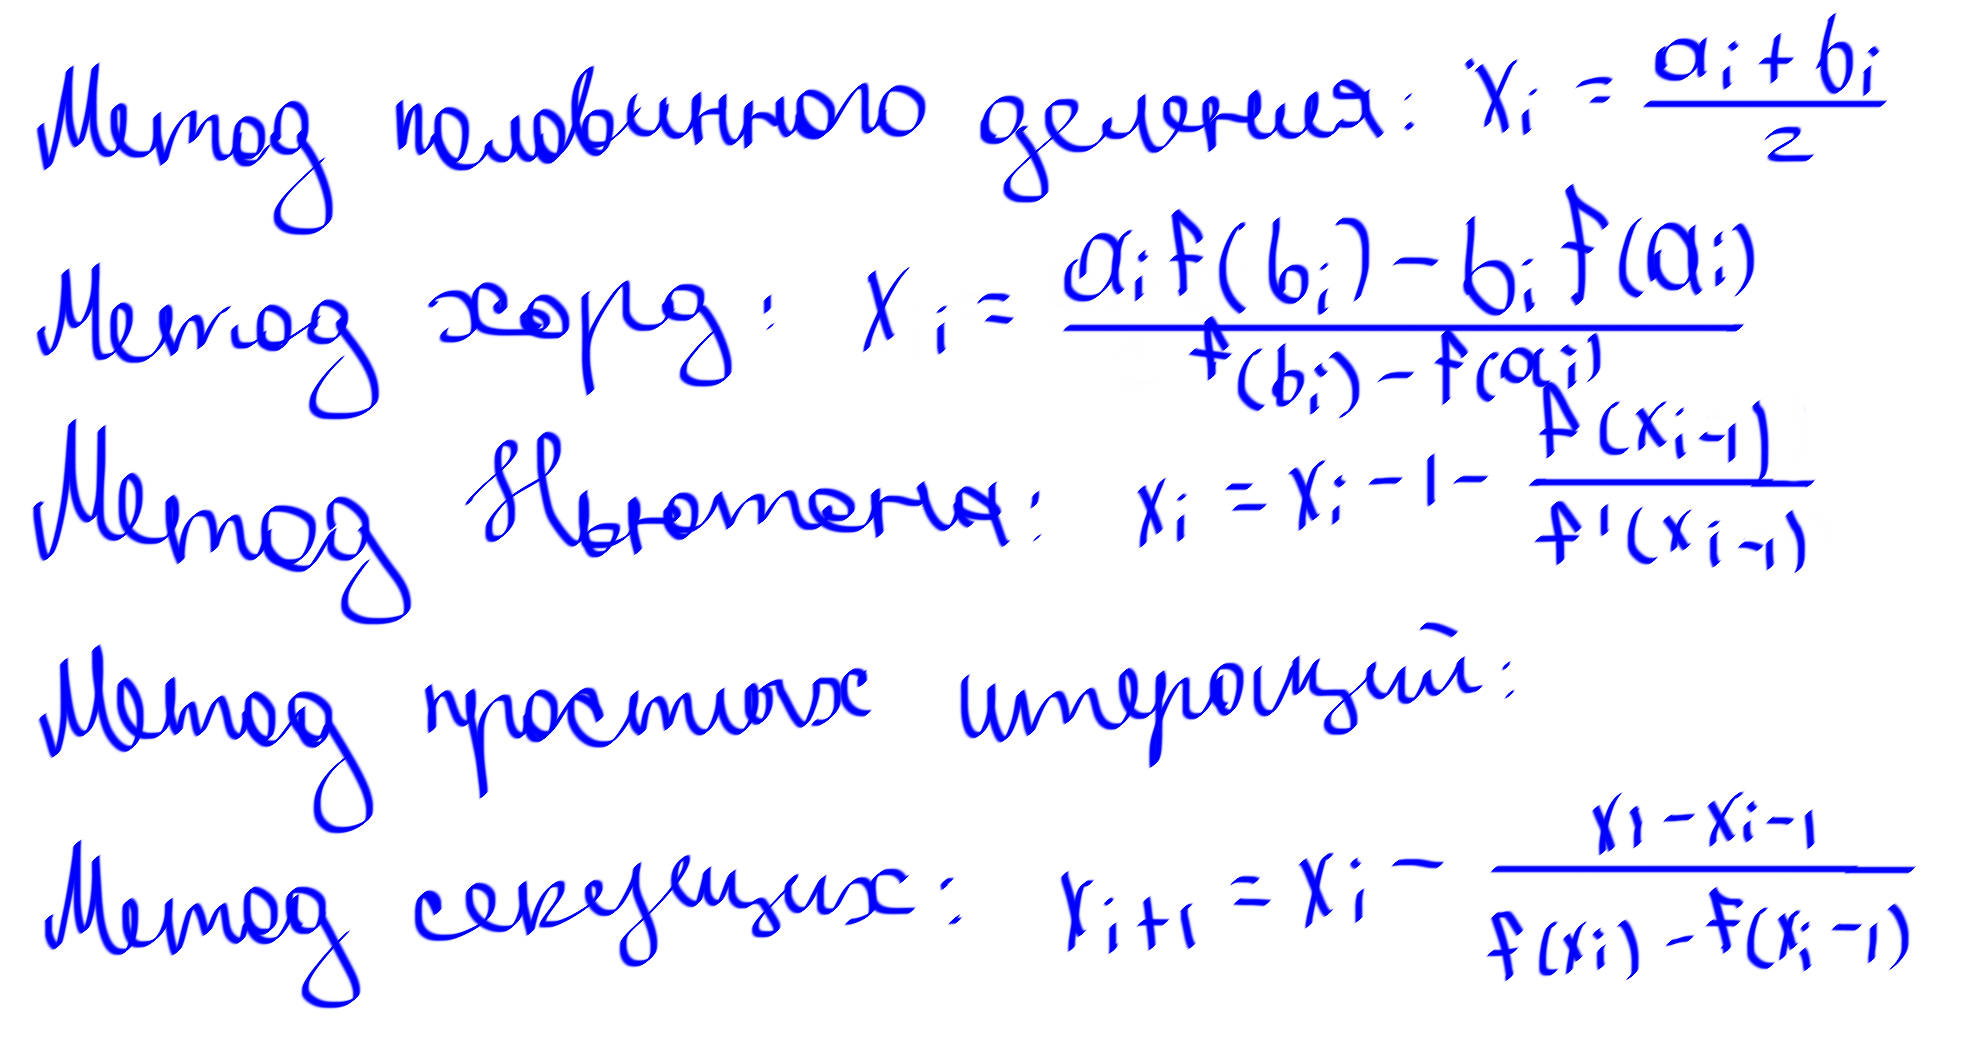 Метод половинного деления: xᵢ = (aᵢ + bᵢ) / 2
Метод хорд: xᵢ = (aᵢ f(bᵢ) - bᵢ f(aᵢ)) / (f(bᵢ) - f(aᵢ))
Метод Ньютона: xᵢ = xᵢ - 1 - f(xᵢ₋₁) / f'(xᵢ₋₁)
Метод простых итераций:
Метод секущих: xᵢ₊₁ = xᵢ - (xᵢ - xᵢ₋₁) / (f(xᵢ) - f(xᵢ - 1))